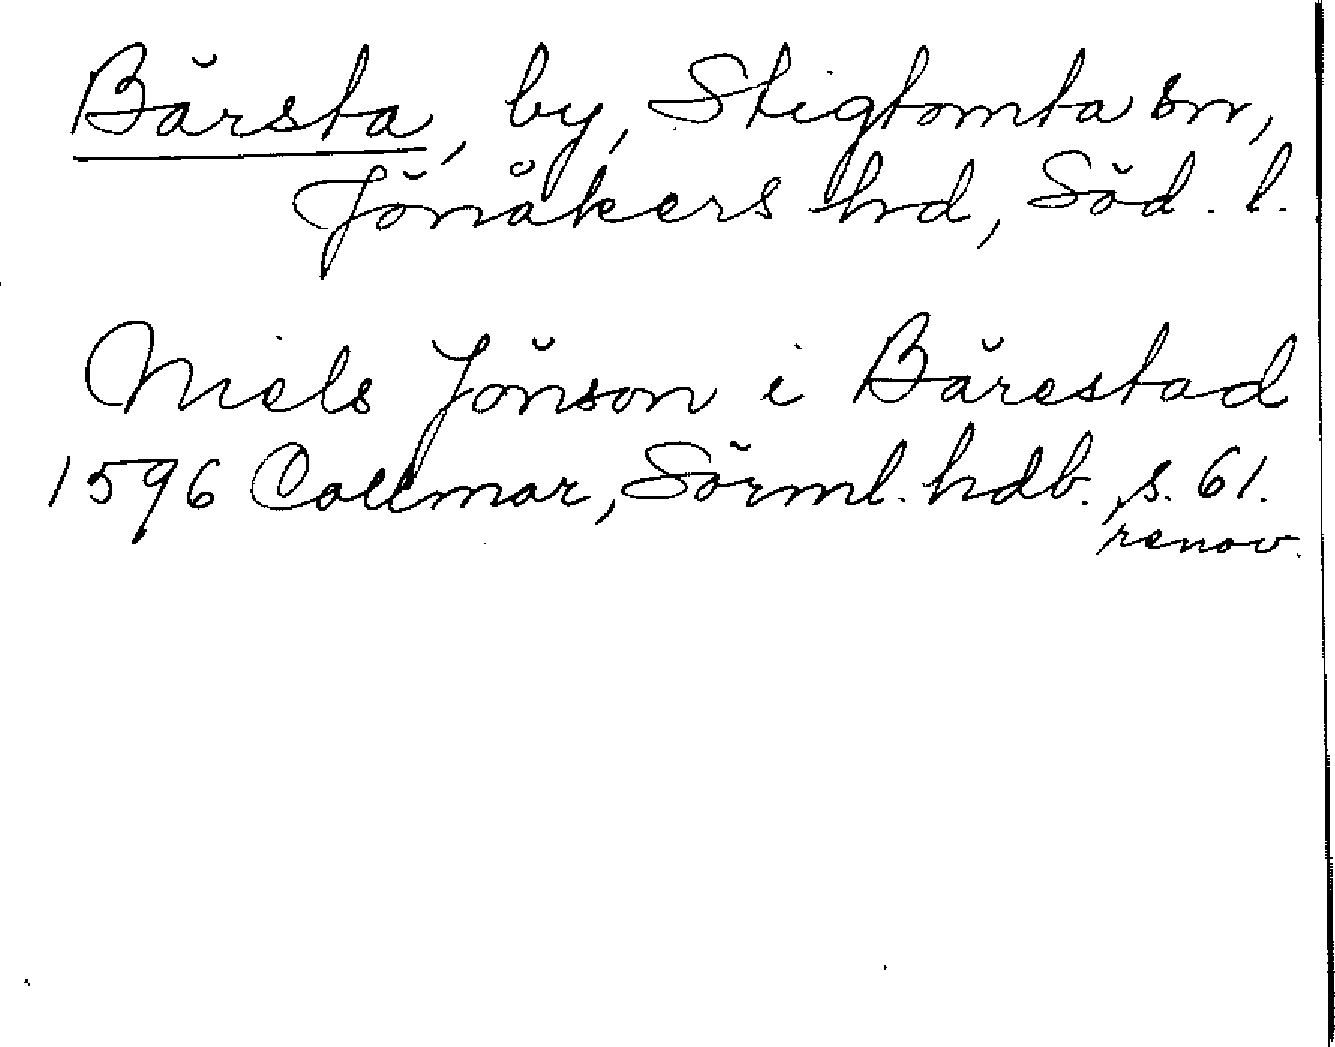 Bärsta, by, Stigtomta sn,
Jönåkers hd, Söd. l.
Niels Jönson i Bärestad
1596 Collmar, Sörml. hdb., s. 61.
renov.